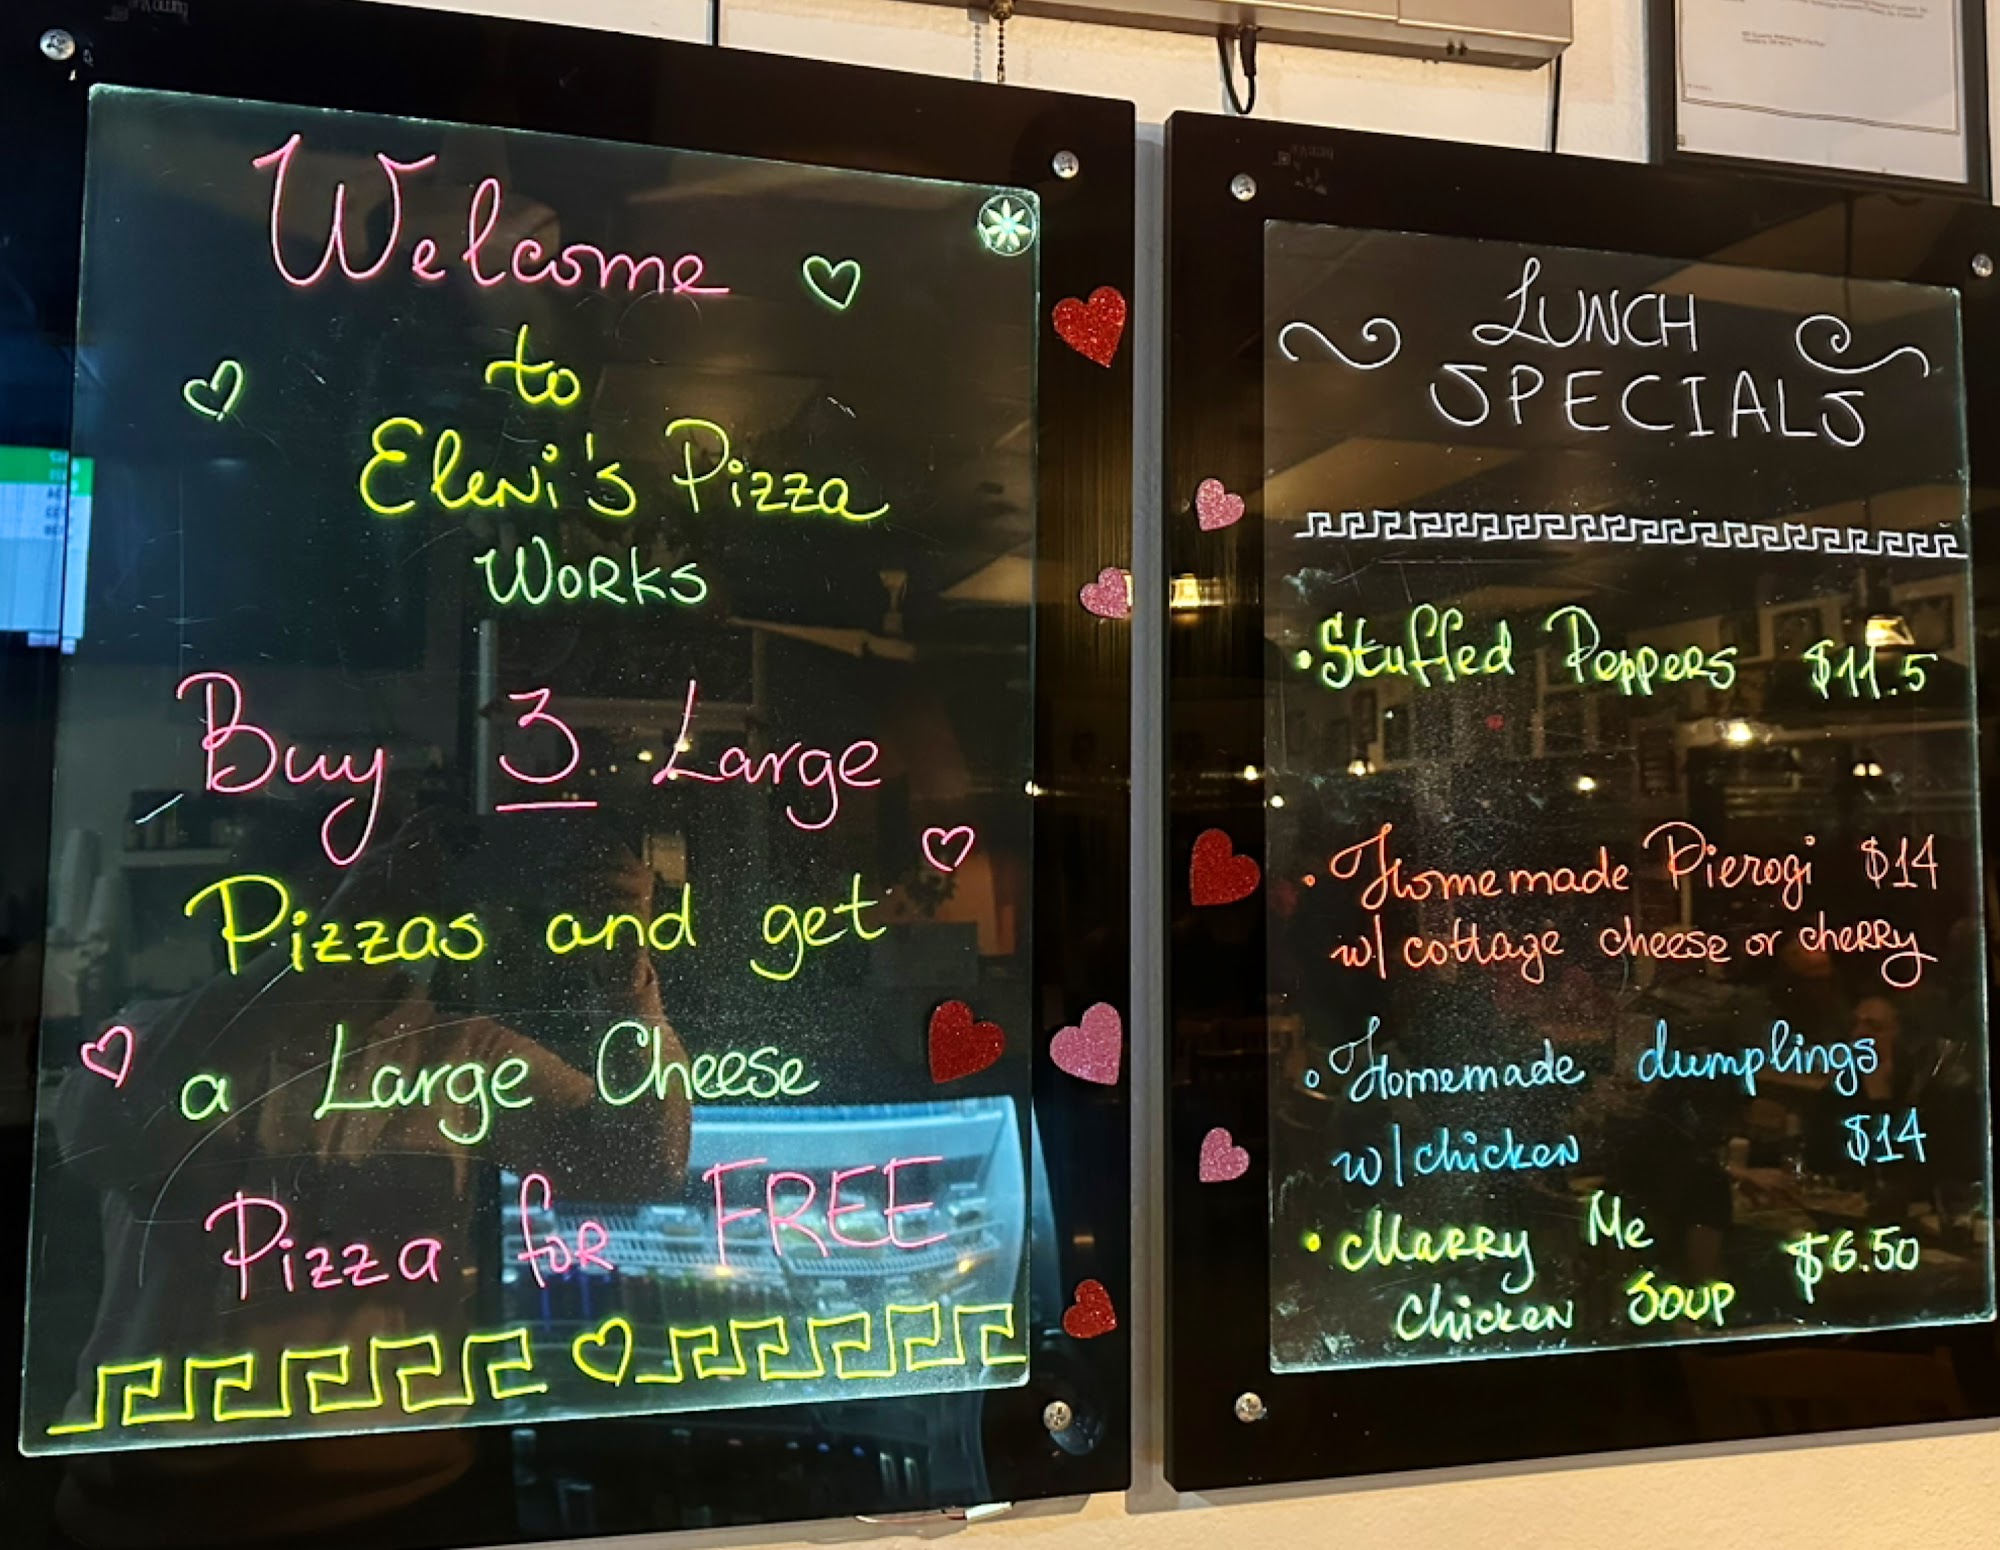 Welcome
to
Eleni's Pizza
Works
Buy 3 Large
Pizzas and get
a Large Cheese
Pizza for FREE
LUNCH
SPECIALS
• Stuffed Peppers $11.5
• Homemade Pierogi $14
w/ cottage cheese or cherry
• Homemade dumplings
w/ chicken $14
• Marry Me
Chicken Soup $6.50